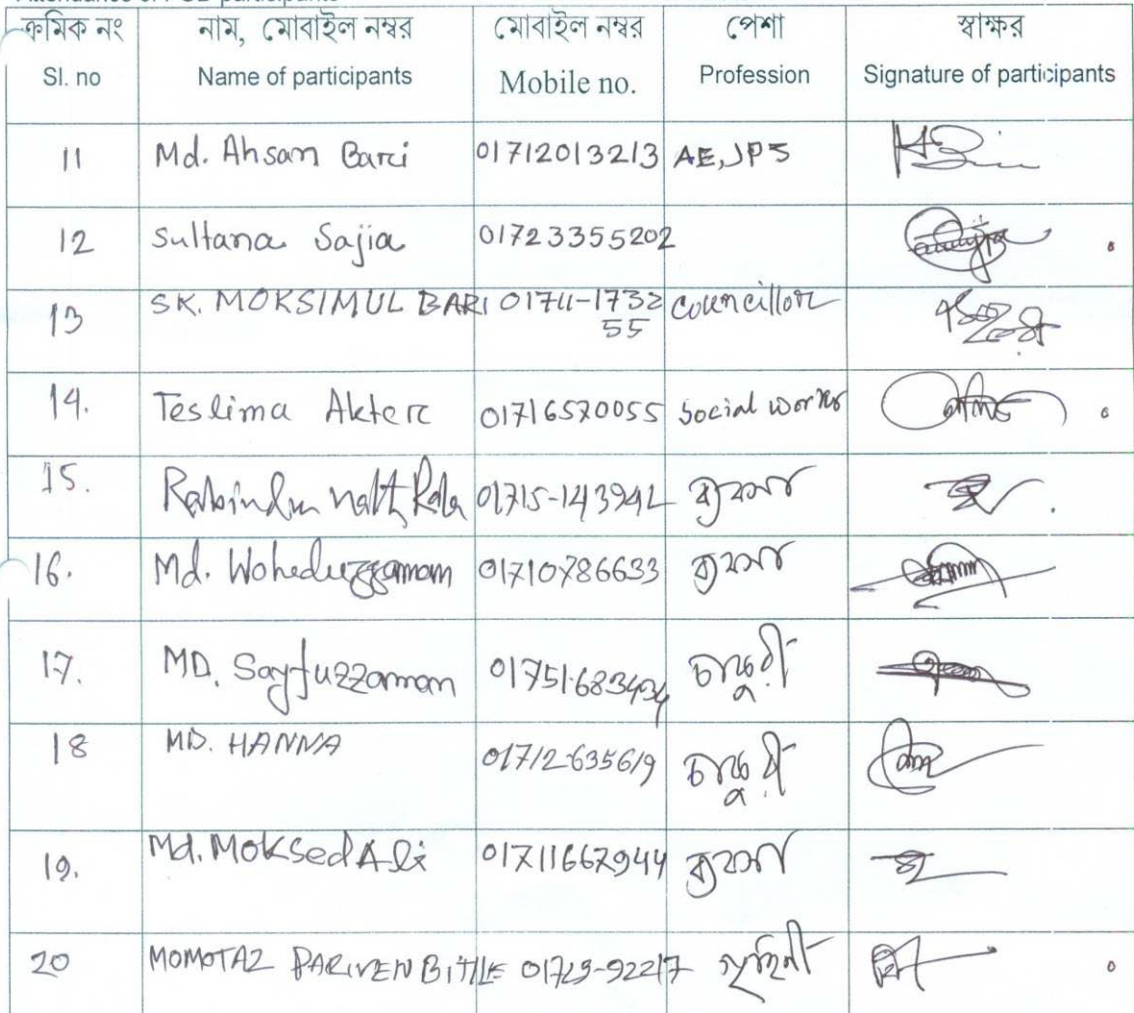 Attendance of FGD participants
ক্রমিক নং নাম, মোবাইল নম্বর মোবাইল নম্বর পেশা স্বাক্ষর
Sl. no Name of participants Mobile no. Profession Signature of participants
11 Md. Ahsan Bari 01712013213 AE, JPS
12 Sultana Sajia 01723355202
13 SK. MOKSIMUL BARI 01711-1732 Councillor
55
14. Teslima Akter 01716570055 Social worker
15. Rabindra nath 01715-143942 ব্যবসা
16. Md. Woheduzzaman 01710786633 ব্যবসা
17. MD. Sayfuzzaman 01751683434 চাকুরী
18 MD. HANNA 01712-635619 চাকুরী
19. Md. Moksed Ali 01711667944 ব্যবসা
20 MOMOTAZ PARIVEN BITHE 01729-92217 গৃহিনী